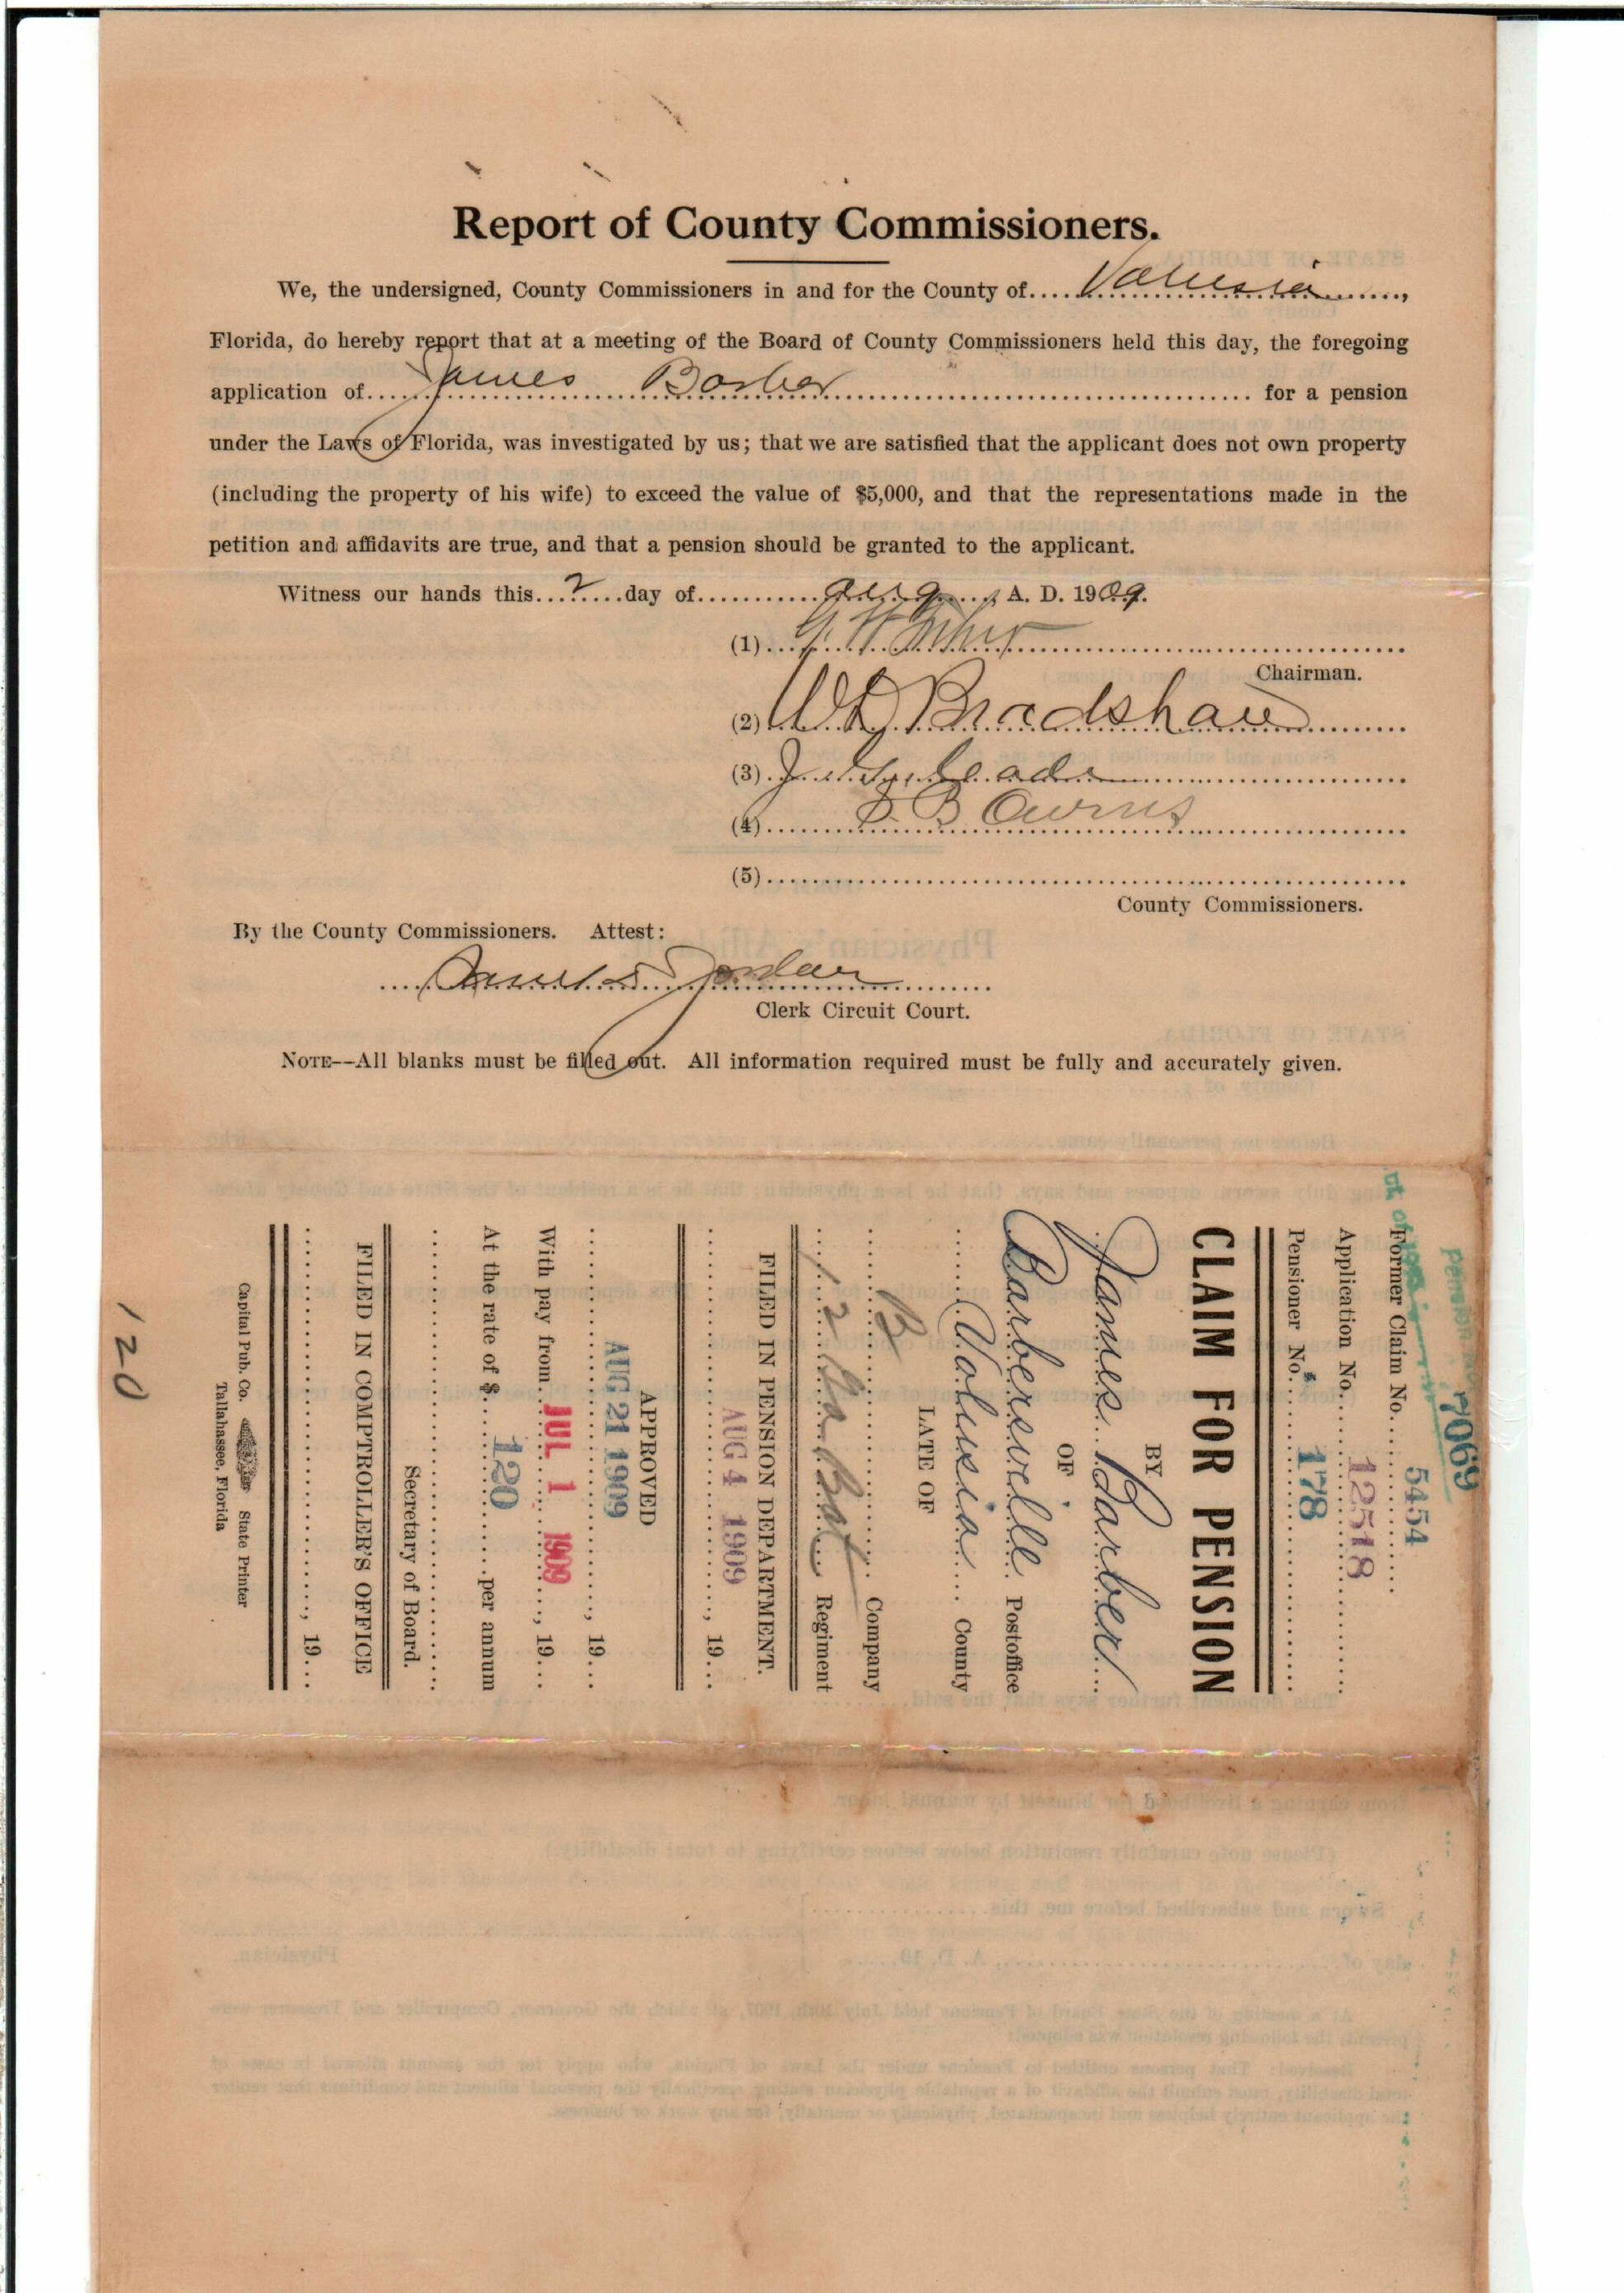 Report of County Commissioners.
We, the undersigned, County Commissioners in and for the County of....Volusia....,
Florida, do hereby report that at a meeting of the Board of County Commissioners held this day, the foregoing
application of....James Barber.... for a pension
under the Laws of Florida, was investigated by us; that we are satisfied that the applicant does not own property
(including the property of his wife) to exceed the value of $5,000, and that the representations made in the
petition and affidavits are true, and that a pension should be granted to the applicant.
Witness our hands this...2...day of....Aug...., A. D. 1909.
(1)
Chairman.
(2) W D Bradshaw
(3)
(4)
(5)
County Commissioners.
By the County Commissioners. Attest:
Jordan
Clerk Circuit Court.
NOTE--All blanks must be filled out. All information required must be fully and accurately given.
7069
Former Claim No. 5454
Application No. 12518
Pensioner No. 178
CLAIM FOR PENSION
BY
James Barber
OF
Barbersville Postoffice
Volusia County
LATE OF
B Company
12 Ga Bat Regiment
FILED IN PENSION DEPARTMENT.
AUG 4 1909, 19...
APPROVED
AUG 21 1909, 19...
With pay from JUL 1 1909, 19...
At the rate of $ 120 per annum
Secretary of Board.
FILED IN COMPTROLLER'S OFFICE
, 19...
Capital Pub. Co. State Printer
Tallahassee, Florida
120